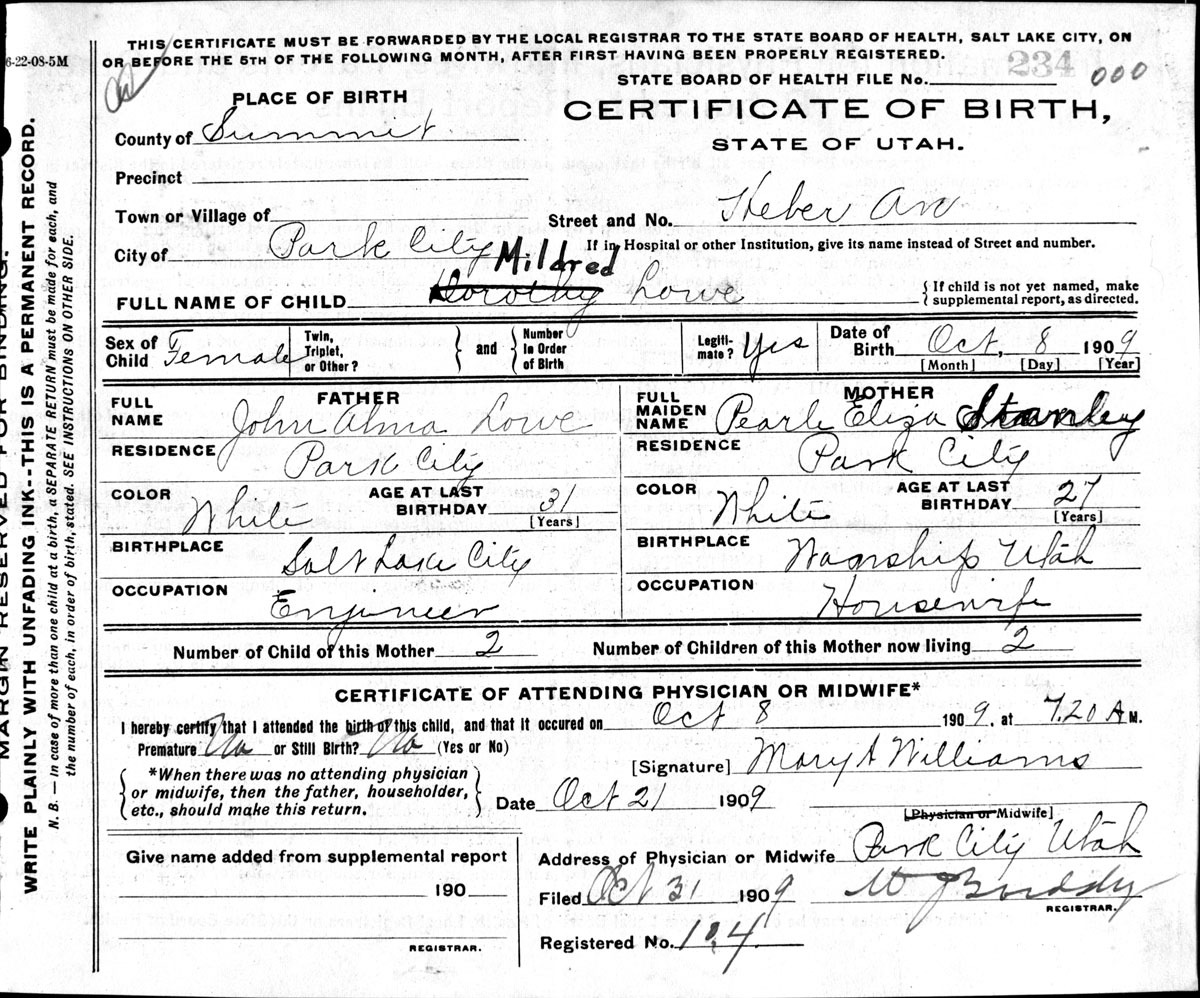 THIS CERTIFICATE MUST BE FORWARDED BY THE LOCAL REGISTRAR TO THE STATE BOARD OF HEALTH, SALT LAKE CITY, ON
OR BEFORE THE 5TH OF THE FOLLOWING MONTH, AFTER FIRST HAVING BEEN PROPERLY REGISTERED.
6-22-08-5M
234
000
STATE BOARD OF HEALTH FILE No.
PLACE OF BIRTH
CERTIFICATE OF BIRTH,
STATE OF UTAH.
County of Summit
Precinct
Town or Village of
Street and No. Heber Ave
City of Park City
If in Hospital or other Institution, give its name instead of Street and number.
Mildred
FULL NAME OF CHILD Dorothy Lowe
{ If child is not yet named, make
supplemental report, as directed.
Sex of Child Female
Twin, Triplet, or Other?
} and {
Number in Order of Birth
Legiti-mate? Yes
Date of Birth Oct, 8 1909
[Month] [Day] [Year]
FATHER
FULL NAME John Alma Lowe
RESIDENCE Park City
COLOR White
AGE AT LAST BIRTHDAY 31
[Years]
BIRTHPLACE Salt Lake City
OCCUPATION Engineer
MOTHER
FULL MAIDEN NAME Pearle Eliza Stanley
RESIDENCE Park City
COLOR White
AGE AT LAST BIRTHDAY 27
[Years]
BIRTHPLACE Wanship Utah
OCCUPATION Housewife
Number of Child of this Mother 2
Number of Children of this Mother now living 2
CERTIFICATE OF ATTENDING PHYSICIAN OR MIDWIFE*
I hereby certify that I attended the birth of this child, and that it occured on Oct 8 1909, at 7.20 A M.
Premature No or Still Birth? No (Yes or No)
[Signature] Mary A Williams
{ *When there was no attending physician
or midwife, then the father, householder,
etc., should make this return. }
Date Oct 21 1909
[Physician or Midwife]
Give name added from supplemental report
190
REGISTRAR.
Address of Physician or Midwife Park City Utah
Filed Oct 31 1909
REGISTRAR.
Registered No. 104
MARGIN RESERVED FOR BINDING.
WRITE PLAINLY WITH UNFADING INK--THIS IS A PERMANENT RECORD.
N. B. — In case of more than one child at a birth, a SEPARATE RETURN must be made for each, and
the number of each, in order of birth, stated. SEE INSTRUCTIONS ON OTHER SIDE.